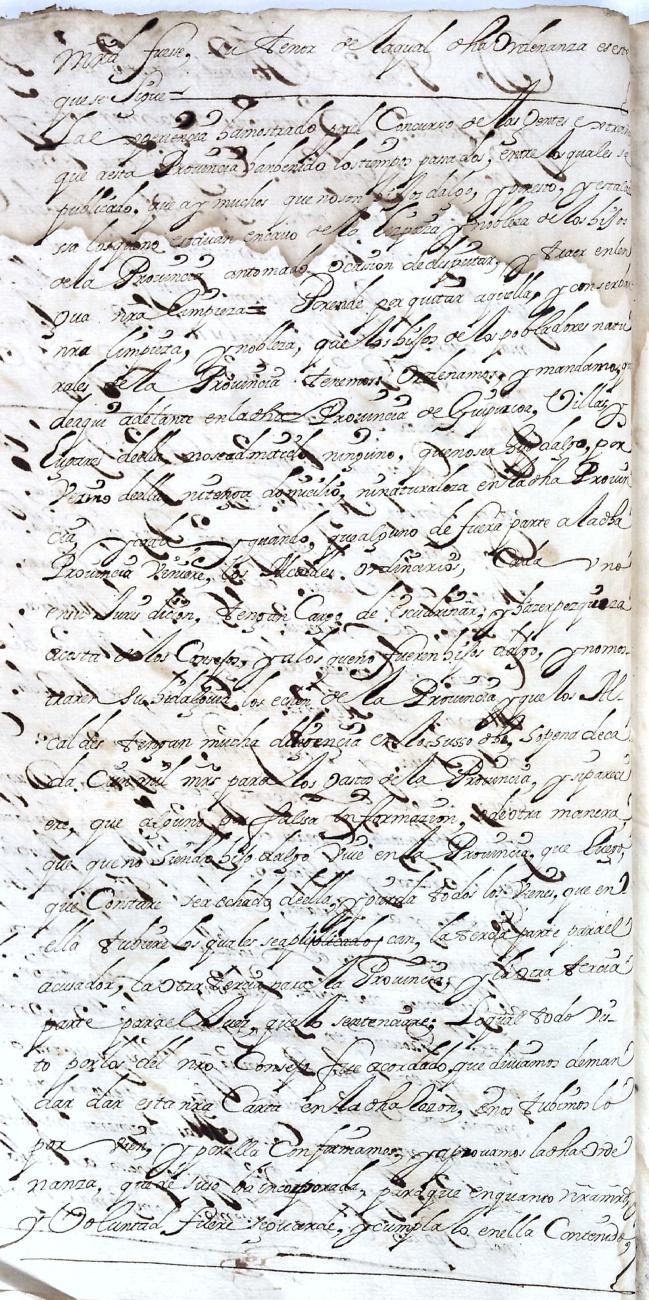 Mrd fuese, su tenor de laqual dha Ordenanza es este
que se sigue =
La esperiencia ha mostrado por el Concurso de las Gentes estra
que a esta Provincia han benido los tiempos pasados, entre los quales se
publicado, que ay muchos que no son hijos dalgo, y por esto, y estando
los que no estavan en cavo de la limpieza y nobleza de los hijos
de la Provincia an tomado ocasion de disputar, y traer en len
gua nra limpieza = Porende por quitar aquella, y conserbar
nra limpieza, y nobleza, que los hijos de los pobladores natu
rales de la Provincia tenemos, Ordenamos, y mandamos, que
de aqui adelante en la dha Provincia de Guipuzcoa, Villas, y
Lugares della no sea admitido ninguno, que no sea hijo dalgo, por
Vezino della, ni tenga domicilio, ni naturaleza en la dha Provin
cia, y cada y quando, que alguno de fuera parte a la dha
Provincia Veniere, los Alcaldes Ordinarios, Cada uno
en su Jurisdicion, tengan Cargo de Escudriñar, y hazer pezquiza
a costa de los Consejos, y a los que no fueren hijos dalgo, y no mos
traren su hidalguia los echen de la Provincia, y que los Al
caldes tengan mucha diligencia en lo susso dho, so pena de ca
da Cien mil mrs para los gastos de la Provincia, y si parecie
ere, que alguno por falsa informazion, o de otra manera
que no siendo hijo dalgo Vive en la Provincia, que luego,
que Constare sea echado della, y pierda todos los Vienes, que en
ella tubiere los quales se apliquen, la tercia parte para el
acusador, la otra tercia para la Provincia, y la otra tercia
parte para el Juez, que lo sentenciare; Lo qual todo vis
to por los del nro Consejo fue acordado, que deviamos deman
dar dar esta nra Carta en la dha razon, e nos tubimos lo
por vien, y por ella Confirmamos, y aprovamos la dha Orde
nanza, que de suso va incorporada, para que en quanto nra mrd,
y Voluntad fuere se guarde, y cumpla lo en ella Contenido